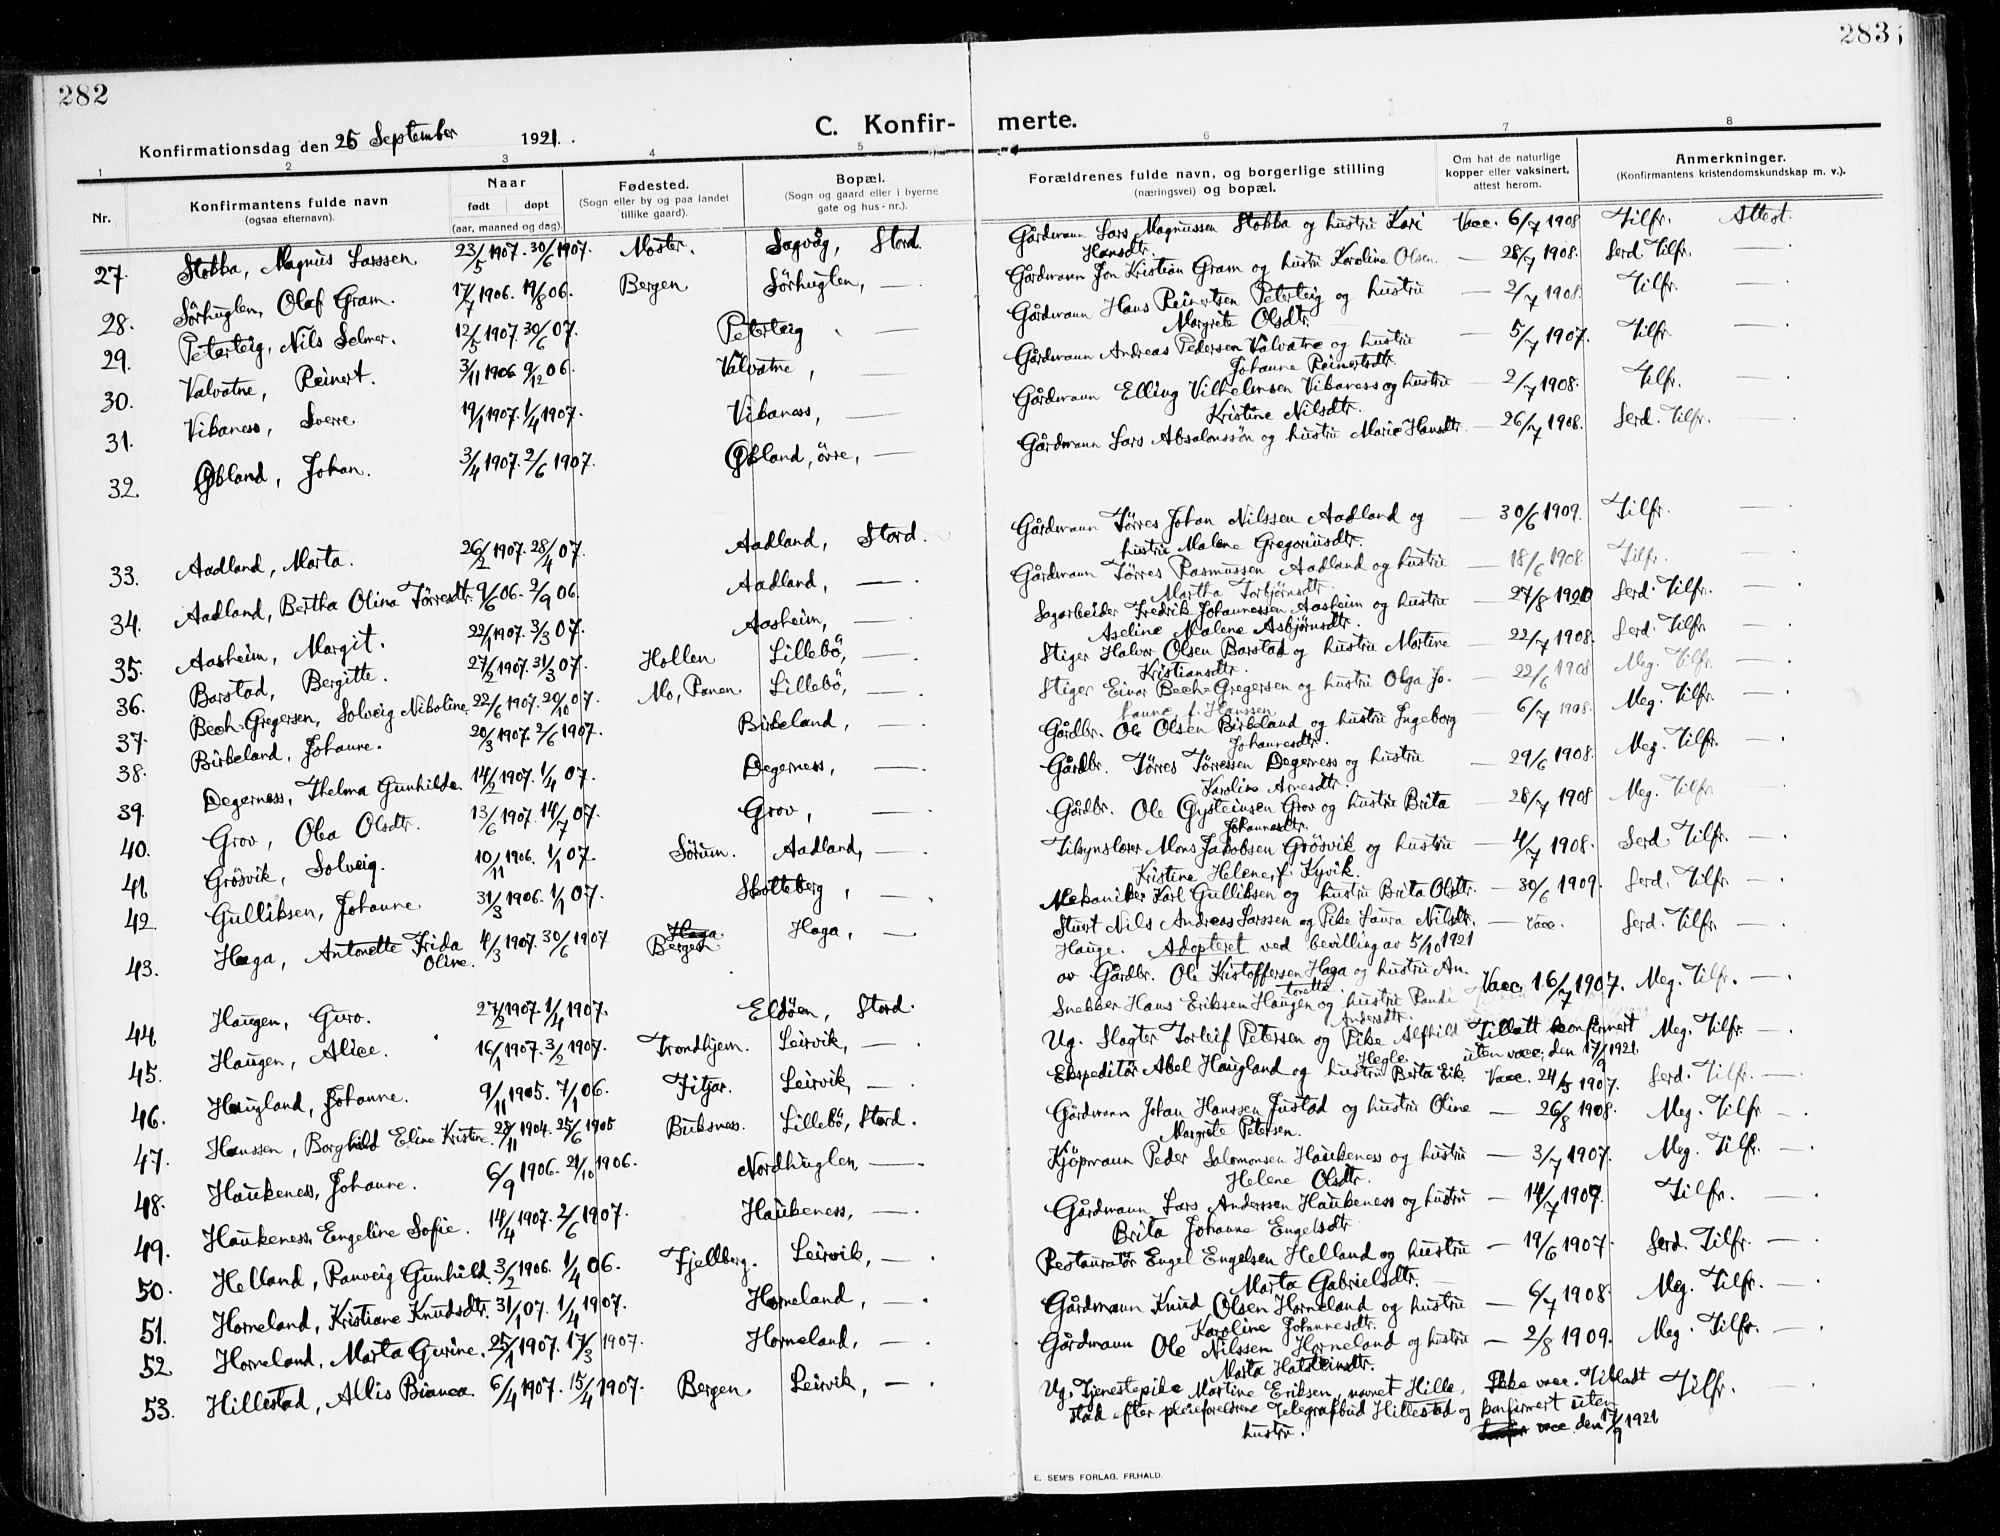 282
283
C. Konfir- merte.
Konfirmationsdag den 25 September 1921.
1 2 3 4 5 6 7 8
Nr. Konfirmantens fulde navn (ogsaa efternavn). Naar født døpt (aar, maaned og dag) Fødested. (Sogn eller by og paa landet tillike gaard). Bopæl. (Sogn og gaard eller i byerne gate og hus-nr.). Forældrenes fulde navn, og borgerlige stilling (næringsvei) og bopæl. Om hat de naturlige kopper eller vaksinert, attest herom. Anmerkninger. (Konfirmantens kristendomskundskap m. v.).
27. Stokka, Magnus Larssen 23/5 1907. 30/6 1907. Moster. Sagvåg, Stord. Gårdmann Lars Magnussen Stokka og hustru Kari Vacc. 6/7 1908 Tilfr. Attest.
Hansdtr.
28. Sörhuglen, Olaf Gram. 17/7 1906. 19/8 06. Bergen Sörhuglen, — Gårdmann Jon Kristian Gram og hustru Karoline Olsen. — 28/7 1908. Serd. Tilfr. —
29. Peterteig, Nils Selmer. 12/5 1907. 30/6 07. Peterteig — Gårdmann Hans Reinertsen Peterteig og hustru — 2/7 1908. Tilfr. —
Margrete Olsdtr.
30. Valvatne, Reinert. 3/11 1906 9/12 06. Valvatne, — Gårdmann Andreas Pedersen Valvatne og hustru — 5/7 1907. Tilfr. —
Johanne Reinertsdtr.
31. Vikaness, Sverre 19/1 1907. 1/4 1907. Vikaness, — Gårdmann Elling Vilhelmsen Vikaness og hustru — 2/7 1908. Tilfr. —
Kristine Nilsdtr.
32. Økland, Johan. 3/4 1907. 2/6 1907. Økland, övre, — Gårdmann Lars Absalonssøn og hustru Marie Hansdtr. — 26/7 1908. Serd. Tilfr. —
33. Aadland, Marta. 26/2 1907. 28/4 07. Aadland, Stord. Gårdmann Törres Johan Nilssen Aadland og — 30/6 1909. Tilfr. —
hustru Malene Gregoriusdtr.
34. Aadland, Bertha Olina Tørresdtr. 9/6 06. 2/9 06. Aadland, — Gårdmann Tørres Rasmussen Aadland og hustru — 18/6 1908. Tilfr. —
Martha Torbjørnsdtr.
35. Aasheim, Margit. 22/1 1907. 3/3 07. Aasheim, — Sagarbeider Fredrik Johannessen Aasheim og hustru — 27/8 1920 Serd. Tilfr. —
Aseline Malene Asbjørnsdtr.
36. Barstad, Bergitte. 27/2 1907. 31/3 07. Hollen Lillebö, — Stiger Halvor Olsen Barstad og hustru Martine — 22/7 1908. Serd. Tilfr. —
Kristiansdtr.
37. Bech-Gregersen, Solveig Nikoline 22/6 1907. 20/10 07. Mo, Ranen. Lillebö, — Stiger Einar Bech-Gregersen og hustru Olga Jo- — 22/6 1908 Meg. Tilfr. —
hanna f. Hanssen.
38. Birkeland, Johanne. 20/3 1907. 2/6 1907. Birkeland, — Gårdbr. Ole Olsen Birkeland og hustru Ingeborg — 6/7 1908. Meg. Tilfr. —
Johannesdtr.
39. Degerness, Thelma Gunhilde. 14/2 1907. 1/4 07. Degerness, — Gårdbr. Törres Törressen Degerness og hustru — 29/6 1908. Meg. Tilfr. —
Karoline Arnesdtr.
40. Grov, Olea Olsdtr. 13/6 1907. 14/7 07. Grov, — Gårdbr. Ole Øysteinsen Grov og hustru Brita — 28/7 1908 Meg. Tilfr. —
Johannesdtr.
41 Grösvik, Solveig. 10/11 1906. 1/1 07. Sörum. Aadland, — Tilsynslærer Mons Jakobsen Grösvik og hustru — 4/7 1908. Serd Tilfr. —
Kristine Helene, f. Kyvik.
42. Gulliksen, Johanne. 31/3 1906. 1/1 07. Skotteberg, — Mekaniker Karl Gulliksen og hustru Brita Olsdtr. — 30/6 1909. Serd. Tilfr. —
43. Haga, Antonette Frida Oline. 4/3 1907. 30/6 1907 Haga Bergen Haga, — Stuert Nils Andreas Larssen og Pike Laura Nilsdtr. — vacc. Serd. Tilfr. —
Hauge. Adopteret ved bevilling av 5/10 1921
av Gårdbr. Ole Kristoffersen Haga og hustru An-
tonette
44. Haugen, Guro. 27/2 1907. 1/4 1907. Eldöen, Stord. Snekker Hans Eriksen Haugen og hustru Randi Vacc. 16/7 1907. Meg. Tilfr. —
Andersdtr.
45. Haugen, Alice. 16/1 1907. 3/2 1907. Trondhjem. Leirvik, — Ug. Slagter Torleif Petersen og Pike Alfhild Tillatt konfirmert Meg. Tilfr. —
Hegle. uten vacc. den 17/9 1921.
46. Haugland, Johanne. 9/11 1905. 7/1 06. Fitjar. Leirvik, — Ekspeditör Abel Haugland og hustru Berta Eik. Vacc. 24/5 1907. Serd. Tilfr. —
47. Hanssen, Borghild Eline Kristine. 28/11 1904. 25/6 1905 Buksness. Lillebö, Stord. Gårdmann Johan Hanssen Justad og hustru Oline — 26/8 1908. Meg. Tilfr —
Margrete Petersen.
48. Haukeness, Johanne. 6/9 1906. 21/10 1906. Nordhuglen, — Kjöpmann Peder Salomonsen Haukeness og hustru — 3/7 1907. Meg. Tilfr. —
Helene Olsdtr.
49. Haukeness, Engeline Sofie. 14/4 1907. 2/6 1907. Haukeness, — Gårdmann Lars Anderssen Haukeness og hustru — 14/7 1907. Tilfr. —
Brita Johanne Engelsdtr
50. Helland, Ranveig Gunhild. 3/2 1906. 1/4 06. Fjellberg. Leirvik, — Restauratör Engel Engelsen Helland og hustru — 19/6 1907. Serd. Tilfr. —
Marta Gabrielsdtr.
51. Horneland, Kristiane Knudsdtr. 31/1 07. 1/4 1907. Horneland, — Gårdmann Knud Olsen Horneland og hustru — 6/7 1908. Meg. Tilfr. —
Karoline Johannesdtr.
52. Horneland, Marta Gurine. 25/1 1907. 17/3 1907. Horneland, — Gårdmann Ole Nilssen Horneland og hustru — 2/8 1909. Meg. Tilfr. —
Marta Hatsteinsdtr.
53. Hillestad, Allis Bianca 6/4 1907. 15/4 1907. Bergen. Leirvik, — Ug. Tjenestepike Martine Eriksen, navnet Hille- Ikke vacc. Tilladt Tilfr. —
stad efter pleieforeldrene Telegrafbud Hillestad og konfirmert uten
hustru. vacc. den 17/9 1921
E. SEM'S FORLAG. FR.HALD.